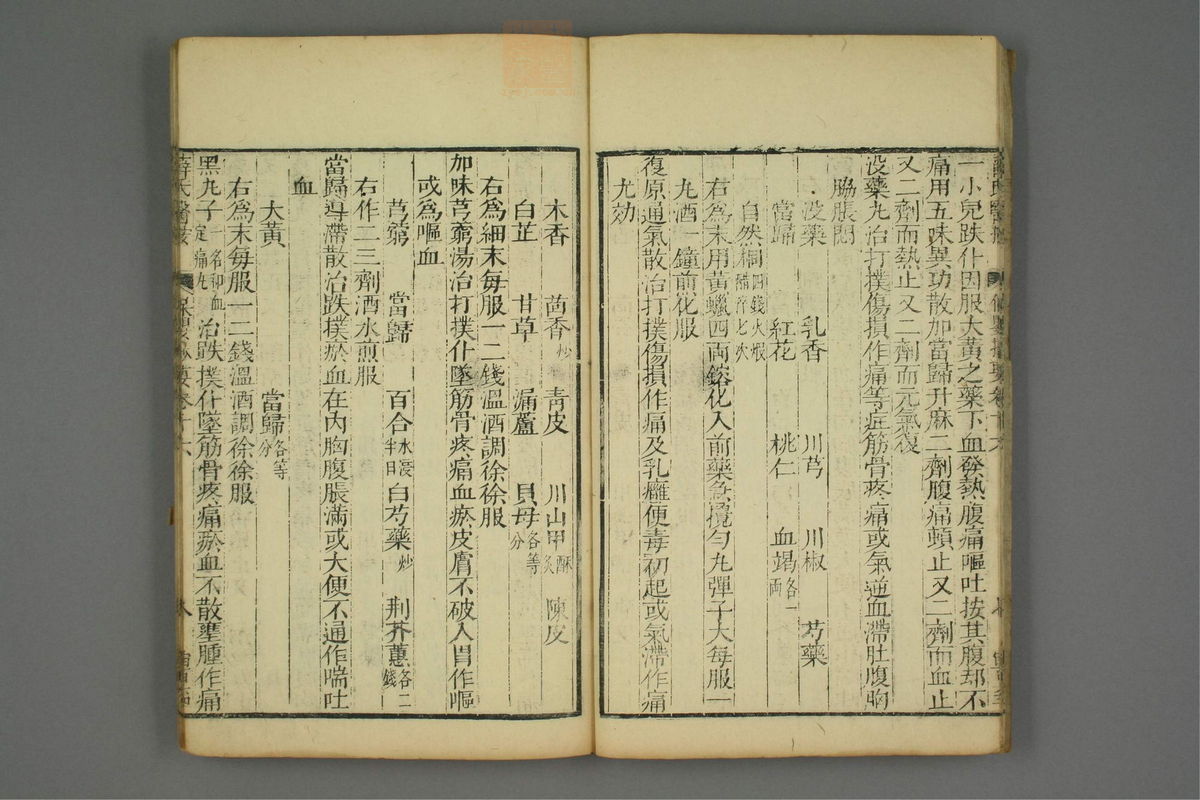 一小兒跌仆因服大黃之藥下血發熱腹痛嘔吐按其腹却不
痛用五味異功散加當歸升麻二劑腹痛頓止又二劑而血止
又二劑而熱止又二劑而元氣復
沒藥丸治打撲傷損作痛等症筋骨疼痛或氣逆血滯肚腹胸
脇脹悶
沒藥 乳香 川芎 川椒 芍藥
當歸 紅花 桃仁 血竭各一兩
自然銅四錢火煅醋淬七次
右爲末用黃蠟四両鎔化入前藥急攪勻丸彈子大每服一
丸酒一鐘煎化服
復原通氣散治打撲傷損作痛及乳癰便毒初起或氣滯作痛
尤効
木香 茴香炒 靑皮 川山甲酥炙 陳皮
白芷 甘草 漏蘆 貝母各等分
右爲細末每服一二錢溫酒調徐徐服
加味芎藭湯治打撲仆墜筋骨疼痛血瘀皮膚不破入胃作嘔
或爲嘔血
芎藭 當歸 百合水浸半日 白芍藥炒 荆芥蕙各二錢
右作二三劑酒水煎服
當歸導滯散治跌撲瘀血在內胸腹脹滿或大便不通作喘吐
血
大黃 當歸各等分
右爲末每服一二錢溫酒調徐徐服
黑丸子一名和血定痛丸 治跌撲仆墜筋骨疼痛瘀血不散壅腫作痛
薛氏醫按 保嬰撮要卷十六